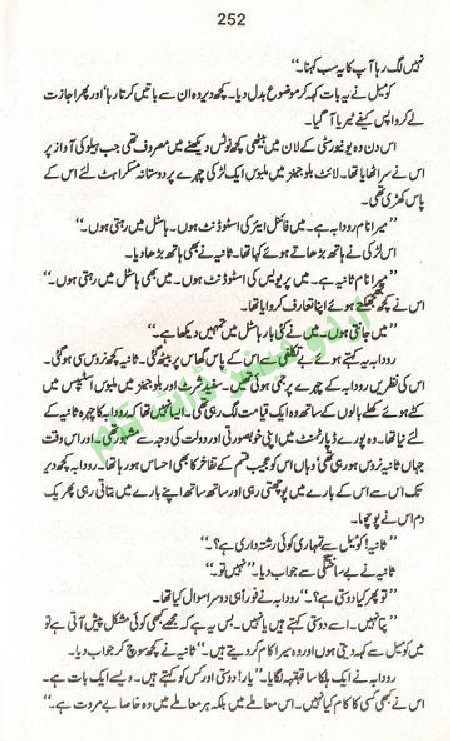 252
نہیں لگ رہا آپ کا یہ سب کہنا۔"
کومیل نے یہ بات کہہ کر موضوع بدل دیا۔ کچھ دیر وہ ان سے باتیں کرتا رہا' اور پھر اجازت
لے کر واپس کیفے ٹیریا آ گیا۔
اس دن وہ یونیورسٹی کے لان میں بیٹھی کچھ نوٹس دیکھنے میں مصروف تھی جب ہیلو کی آواز پر
اس نے سر اٹھایا تھا۔ لائٹ بلو جینز میں ملبوس ایک لڑکی چہرے پر دوستانہ مسکراہٹ لئے اس کے
پاس کھڑی تھی۔
"میرا نام رودابہ ہے۔ میں فائنل ایئر کی اسٹوڈنٹ ہوں۔ ہاسٹل میں رہتی ہوں۔"
اس لڑکی نے ہاتھ بڑھاتے ہوئے کہا تھا۔ ثانیہ نے بھی ہاتھ بڑھا دیا۔
"میرا نام ثانیہ ہے۔ میں پریویس کی اسٹوڈنٹ ہوں۔ میں بھی ہاسٹل میں رہتی ہوں۔"
اس نے کچھ جھجکتے ہوئے اپنا تعارف کروایا تھا۔
"میں جانتی ہوں۔ میں نے کئی بار ہاسٹل میں تمہیں دیکھا ہے۔"
رودابہ یہ کہتے ہوئے بے تکلفی سے اس کے پاس گھاس پر بیٹھ گئی۔ ثانیہ کچھ نروس سی ہو گئی۔
اس کی نظریں رودابہ کے چہرے پر جمی ہوئی تھیں۔ سفید شرٹ اور بلو جینز میں ملبوس اسٹیپس میں
کٹے ہوئے کھلے بالوں کے ساتھ وہ ایک قیامت لگ رہی تھی۔ ایسا نہیں تھا کہ رودابہ کا چہرہ ثانیہ کے
لئے نیا تھا۔ وہ پورے ڈپارٹمنٹ میں اپنی خوبصورتی اور دولت کی وجہ سے مشہور تھی۔ اور اس وقت
جہاں ثانیہ نروس ہو رہی تھی' وہاں اس کو عجیب قسم کے تفاخر کا بھی احساس ہو رہا تھا۔ رودابہ کچھ دیر
تک اس سے اس کے بارے میں پوچھتی رہی اور ساتھ ساتھ اپنے بارے میں بتاتی رہی پھر یک
دم اس نے پوچھا۔
"ثانیہ! کومیل سے تمہاری کوئی رشتہ داری ہے؟"
ثانیہ نے بے ساختگی سے جواب دیا۔ "نہیں تو۔"
"تو پھر کیا دوستی ہے؟۔" رودابہ نے فوراً ہی دوسرا سوال کیا تھا۔
"پتا نہیں۔ اسے دوستی کہتے ہیں یا نہیں۔ بس یہ ہے کہ مجھے کبھی کوئی مشکل پیش آتی ہے تو
میں کومیل سے کہہ دیتی ہوں اور وہ میرا کام کر دیتے ہیں۔" ثانیہ نے کچھ سوچ کر جواب دیا۔
رودابہ نے ایک ہلکا سا قہقہہ لگایا۔ "یار! دوستی اور کس کو کہتے ہیں۔ ویسے ایک بات ہے۔
اس نے کبھی کسی کا کام کیا نہیں۔ اس معاملے میں بلکہ ہر معاملے میں وہ خاصا بے مروت ہے۔"